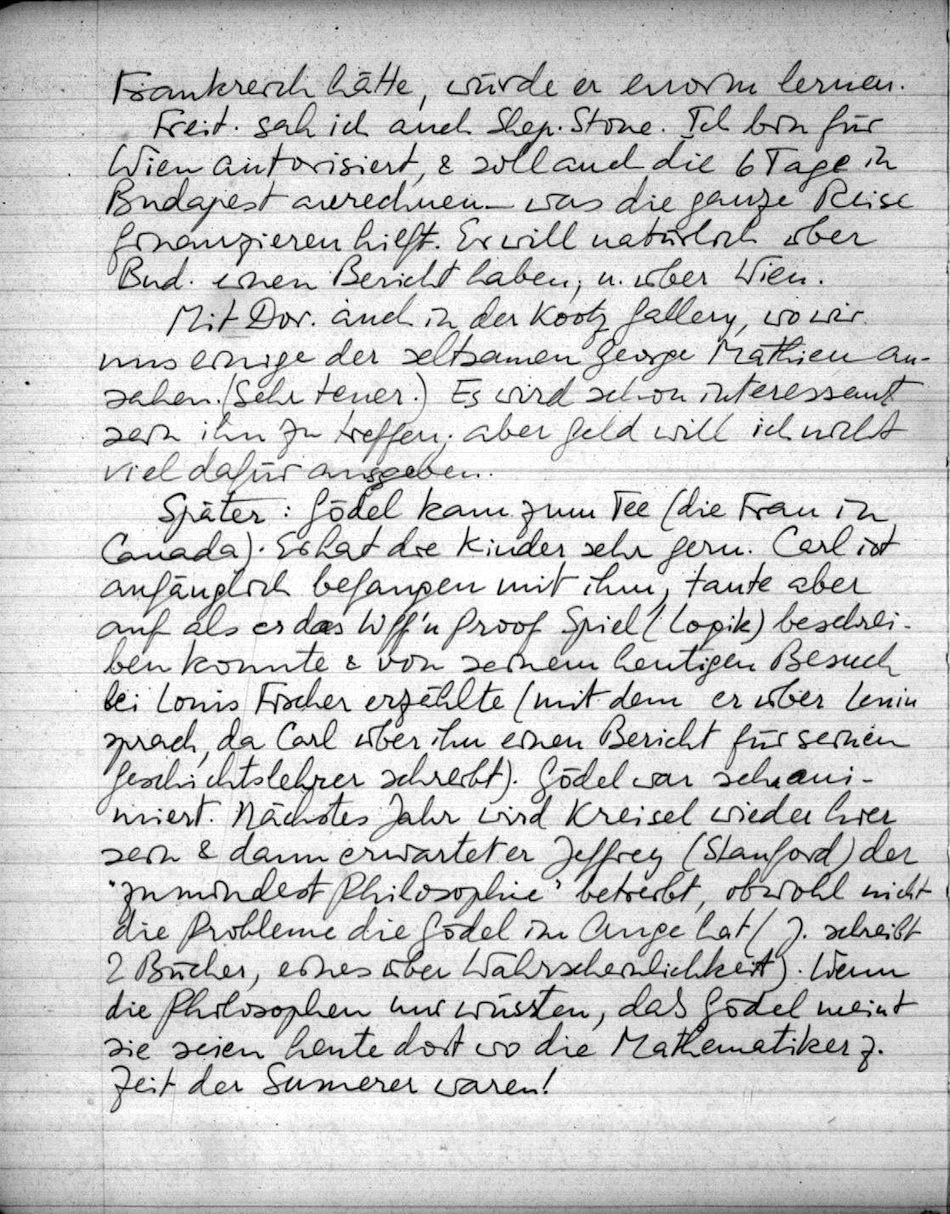 Frankreich hätte, würde er enorm lernen.
Freit. sah ich auch Shep. Stone. Ich bin für
Wien autorisiert, & soll auch die 6 Tage in
Budapest anrechnen – was die ganze Reise
finanzieren hilft. Er will natürlich über
Bud. einen Bericht haben, u. über Wien.
Mit Dor. auch in der Kootz Gallery, wo wir
uns einige der seltsamen George Mathieu an-
sahen. (Sehr teuer.) Es wird schon interessant
sein ihn zu treffen, aber Geld will ich nicht
viel dafür ausgeben.
Später : Gödel kam zum Tee (die Frau in
Canada). Er hat die Kinder sehr gern. Carl ist
anfänglich befangen mit ihm, taute aber
auf als er das Wff'n Proof Spiel (Logik) beschrei-
ben konnte & von seinem heutigen Besuch
bei Louis Fischer erzählte (mit dem er über Lenin
sprach, da Carl über ihn einen Bericht für seinen
Geschichtslehrer schreibt). Gödel war sehr ani-
miert. Nächstes Jahr wird Kreisel wieder hier
sein & dann erwartet er Jeffrey (Stanford) der
'zumindest Philosophie' betreibt, obwohl nicht
die Probleme die Gödel im Auge hat (J. schreibt
2 Bücher, eines über Wahrscheinlichkeit). Wenn
die Philosophen nur wüssten, daß Gödel meint
sie seien heute dort wo die Mathematiker z.
Zeit der Sumerer waren!